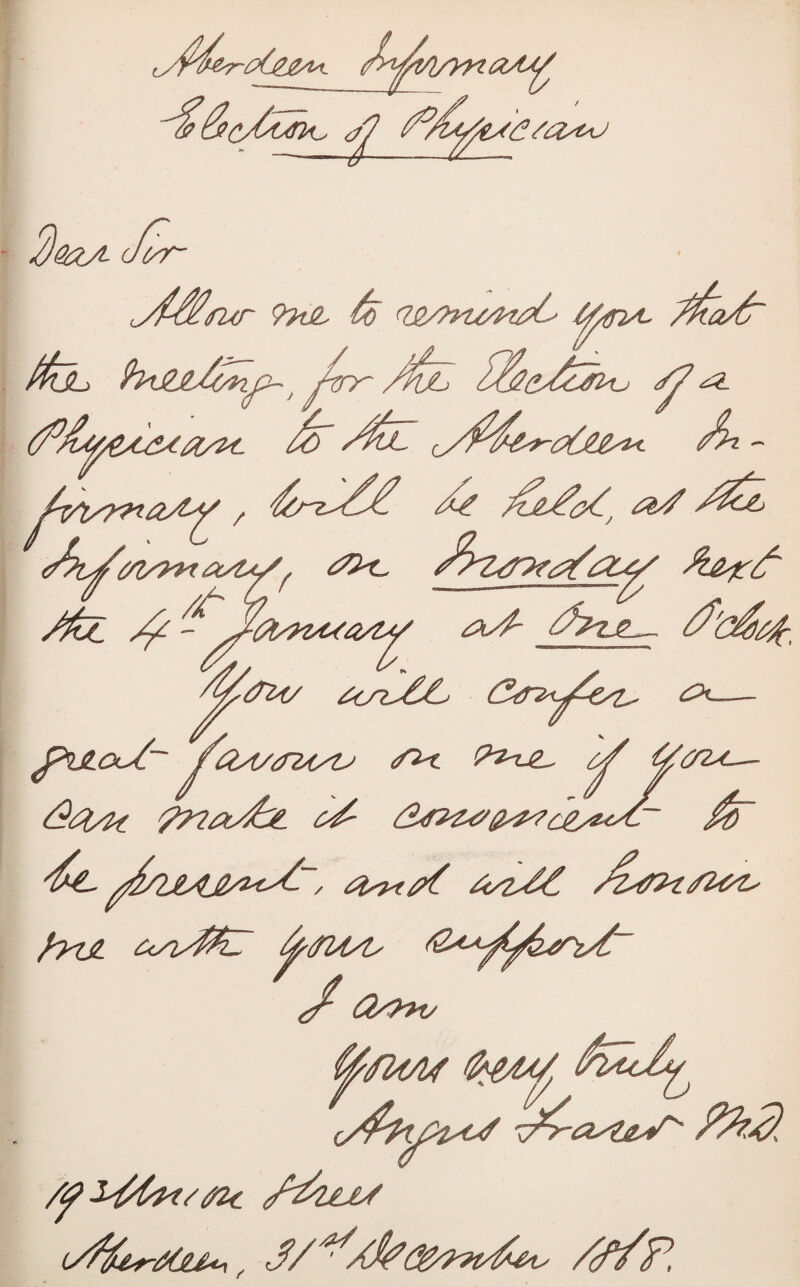 Aberdeen Infirmary
Election of Physician
Dear Sir
Allow me to remind you that
the meeting, for the Election of a
Physician to the Aberdeen In-
firmary, will be held, at the
Infirmary, on Monday next
the 4th January at One O'clock.
You will confer a
great favour on me if you
can make it convenient to
be present, and will honour
me with your support
I am
Yours very truly
Angus Fraser M.D.
Union Street
Aberdeen, 31st December 1868.